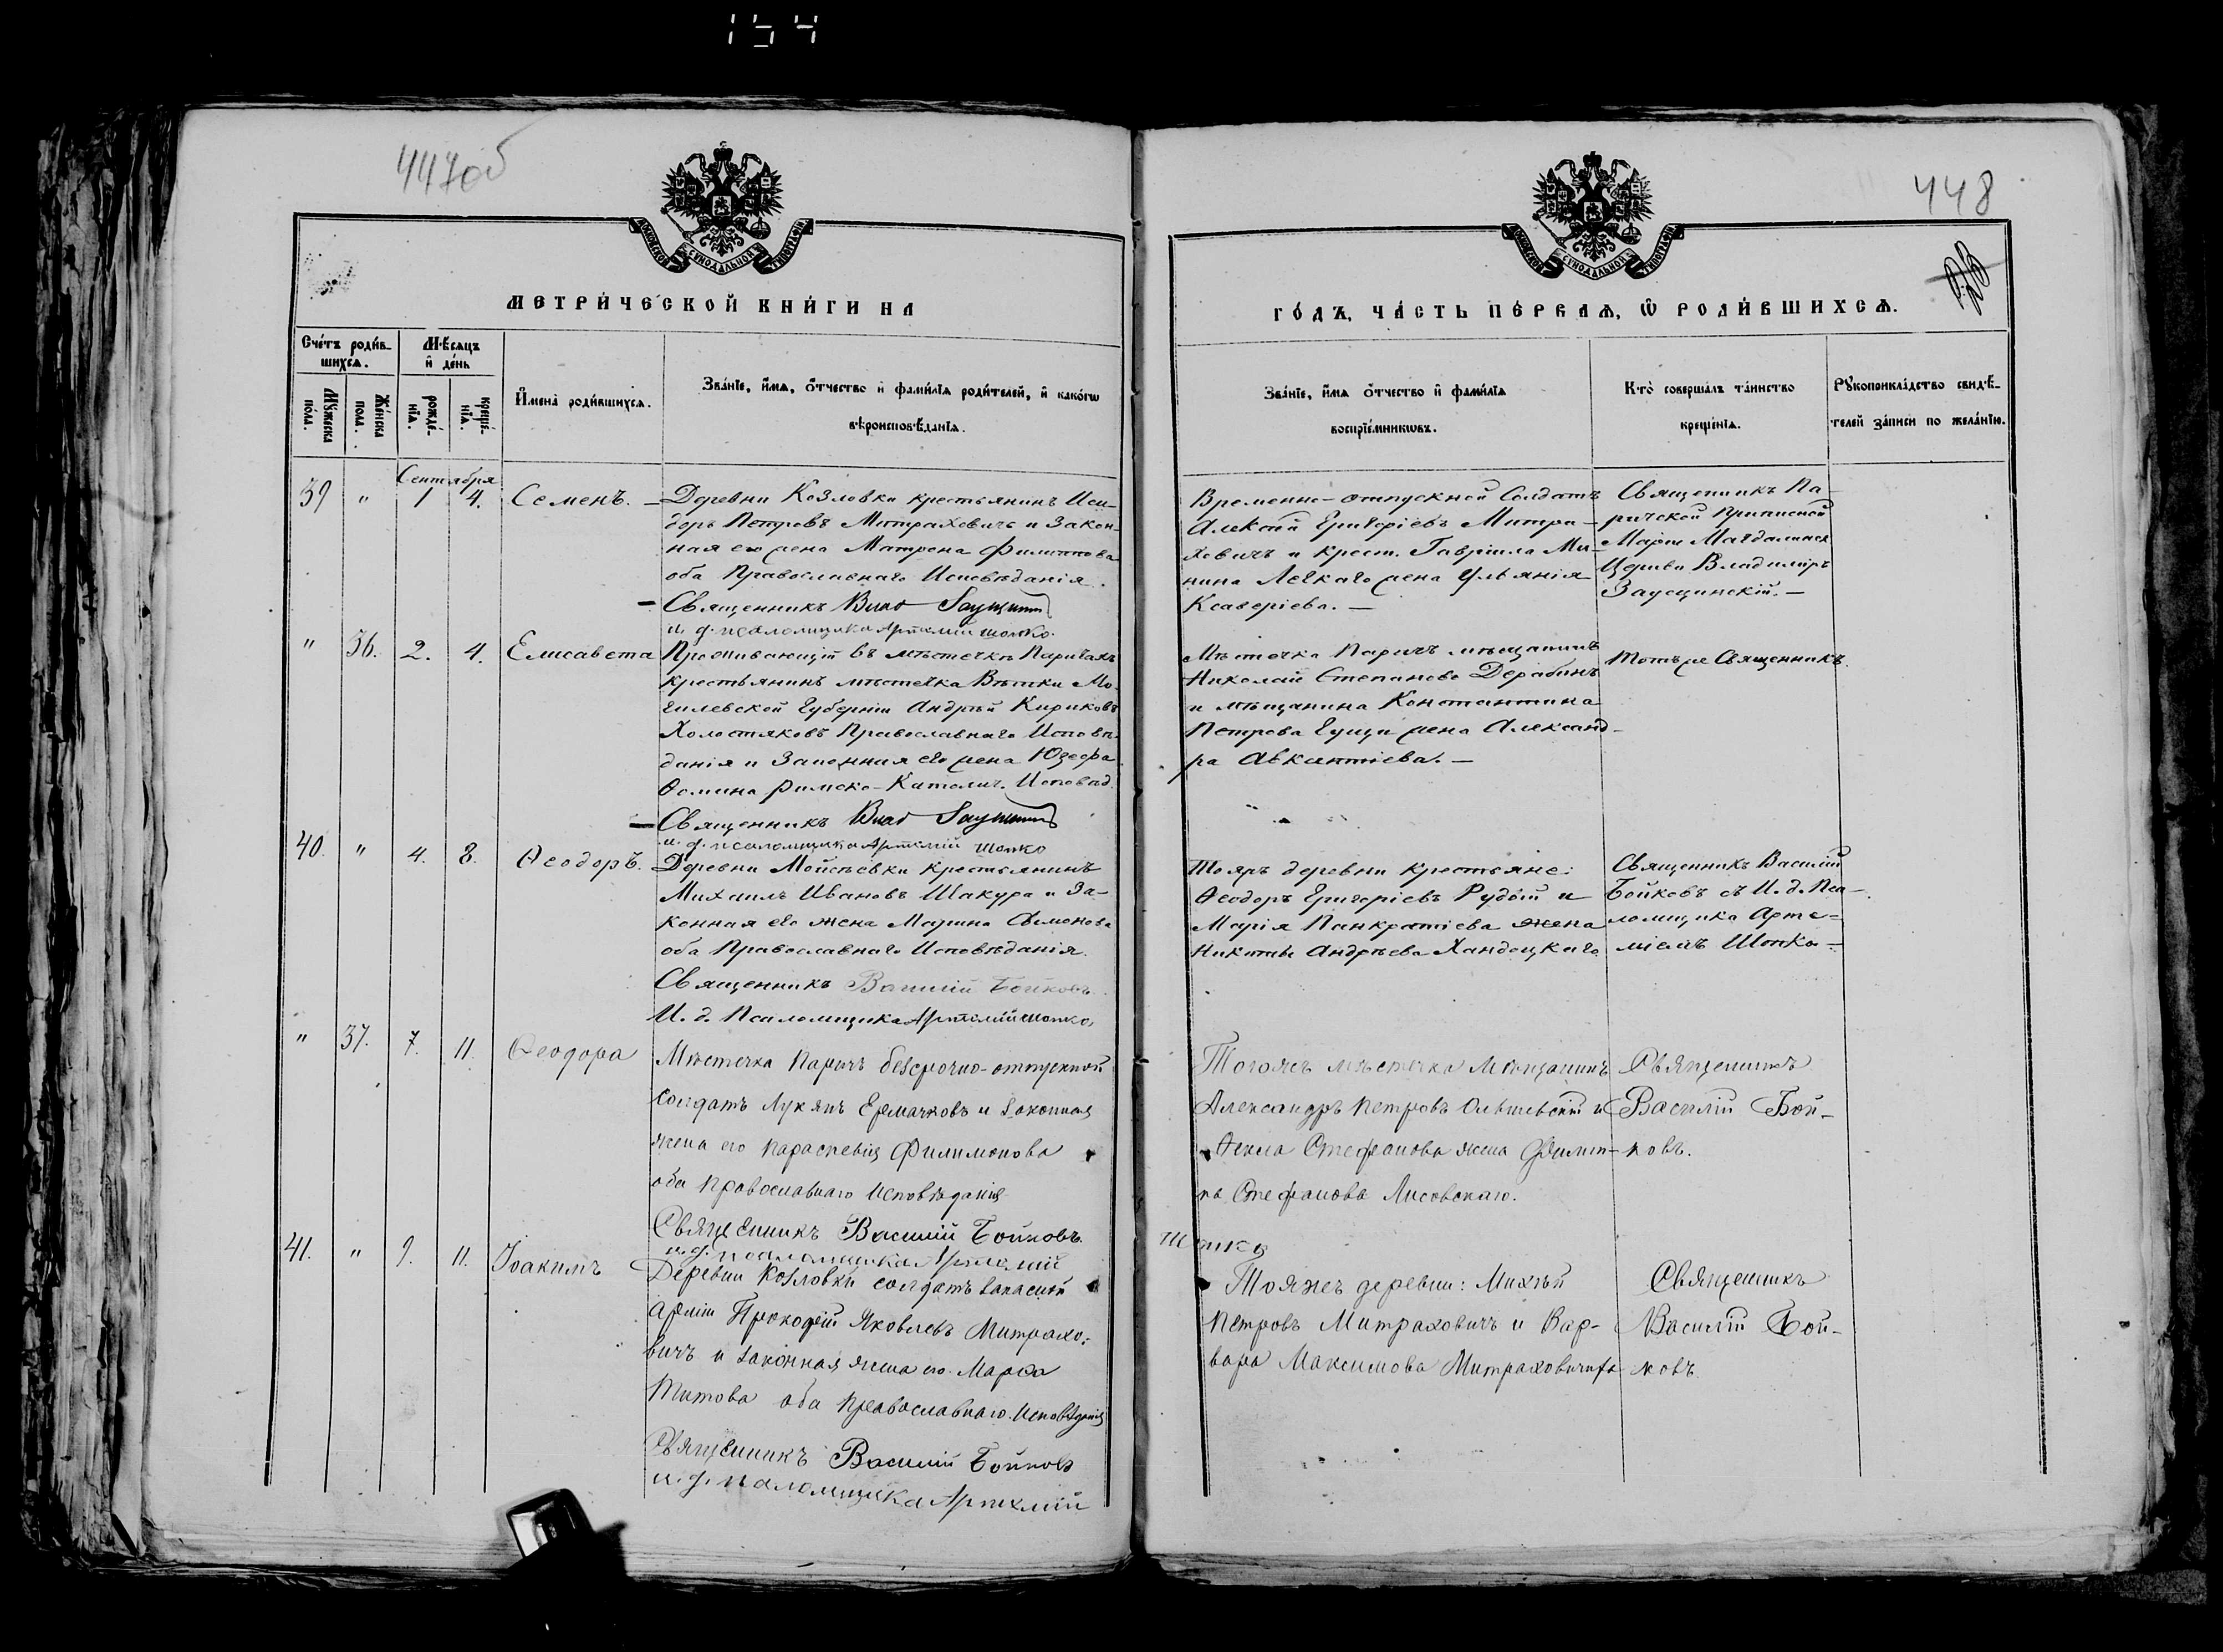 154
447об
448
МОСКОВСКОЙ СѴНОДАЛЬНОЙ ТИПОГРАФІИ
МОСКОВСКОЙ СѴНОДАЛЬНОЙ ТИПОГРАФІИ
МЕТРИ́ЧЕСКОЙ КНИ́ГИ НА
ГО́ДЪ, ЧА́СТЬ ПЕ́РВАѦ, Ѡ҆ РОДИ́ВШИХСѦ.
Сче́тъ роди́в-
шихсѧ.
Мꙋ́жеска
по́ла.
Же́нска
пола.
Мѣ́сѧцъ
и҆ де́нь
рожде́-
нїѧ.
креще́-
нїѧ.
И҆мена̀ роди́вшихсѧ.
Зва́нїе, и҆́мѧ, ѻ҆́тчество и҆ фами́лїѧ роди́телей, и҆ како́гѡ
вѣроисповѣ́данїѧ.
Зва́нїе, и҆́мѧ ѻ҆́тчество и҆ фами́лїѧ
воспрїе́мникѡвъ.
Кто̀ соверша́лъ та́инство
креще́нїѧ.
Рꙋкоприкла́дство свидѣ́-
телей за́писи по жела́нїю.
Сентября
39 " 1 4. Семенъ. –
Деревни Козловки крестьянинъ Иси-
доръ Петровъ Митраховичъ и Закон-
ная его жена Матрена Филиппова
оба Православнаго Исповѣданія.
– Священникъ Влад
и. д. псаломщика Артемій Шопко.
Временно-отпускной Солдатъ
Алексѣй Григоріевъ Митра-
ховичъ и крест. Гавріила Ми-
нина жена Ульянія
Ксаверіева. –
Священникъ Па-
ричской Приписной
Маріи Магдалинск
Церкви Владиміръ
Заусцинскій. –
" 36. 2. 4. Елисавета
Проживающій въ мѣстечкѣ Паричахъ
крестьянинъ мѣстечка Вѣтки Мо-
гилевской Губерніи Андрей Кириковъ
Холостяковъ Православнаго Исповѣ-
данія и Законная его жена Юзефа
Ѳомина Римско-Католич. Исповѣд.
– Священникъ Влад
и. д. псаломщика Артемій Шопко
Мѣстечка Паричъ мѣщанинъ
Николай Степановъ Дерабинъ
и мѣщанина Константина
Петрова жена Александ-
ра Авксентіева. –
Тотъ же Священникъ.
40. " 4. 8. Ѳеодоръ.
Деревни Мойсѣевки крестьянинъ
Михаилъ Ивановъ Шакура и За-
конная его жена Марина Семенова
оба Православнаго Исповѣданія.
Священникъ Василій Бойковъ.
И. д. Псаломщика Артемій Шопко,
Тояжъ деревни крестьяне:
Ѳеодоръ Григоріевъ Рудый и
Марія Панкратіева жена
Никиты Андреева Хандоцкаго
Священникъ Василій
Бойковъ съ И. д. Пса-
ломщика Арте-
міемъ Шопко –
" 37. 7. 11. Ѳеодора
Мѣстечка Паричъ безсрочно-отпускной
солдатъ Лукянъ Ермачковъ и Законная
жена его Параскевія Филимонова
оба Православнаго Исповѣданія
Священникъ Василій Бойковъ.
и. д. псаломщика Артемій
Шопко
Тогожъ мѣстечка Мѣщанинъ
Александръ Петровъ Ольшевскій и
Ѳекла Стефанова жена Филип-
па Стефанова Лисовскаго.
Священникъ
Василій Бой-
ковъ.
41. " 9. 11. Іоакимъ
Деревни Козловки солдатъ запасной
арміи Прокофій Яковлевъ Митрахо-
вичъ и законная жена его Марѳа
Титова оба Православнаго Исповѣданія
Священникъ Василій Бойковъ
и. д. псаломщика Артемій
Тояжъ деревни: Михѣй
Петровъ Митраховичъ и Вар-
вара Максимова
Священникъ
Василій Бой-
ковъ.